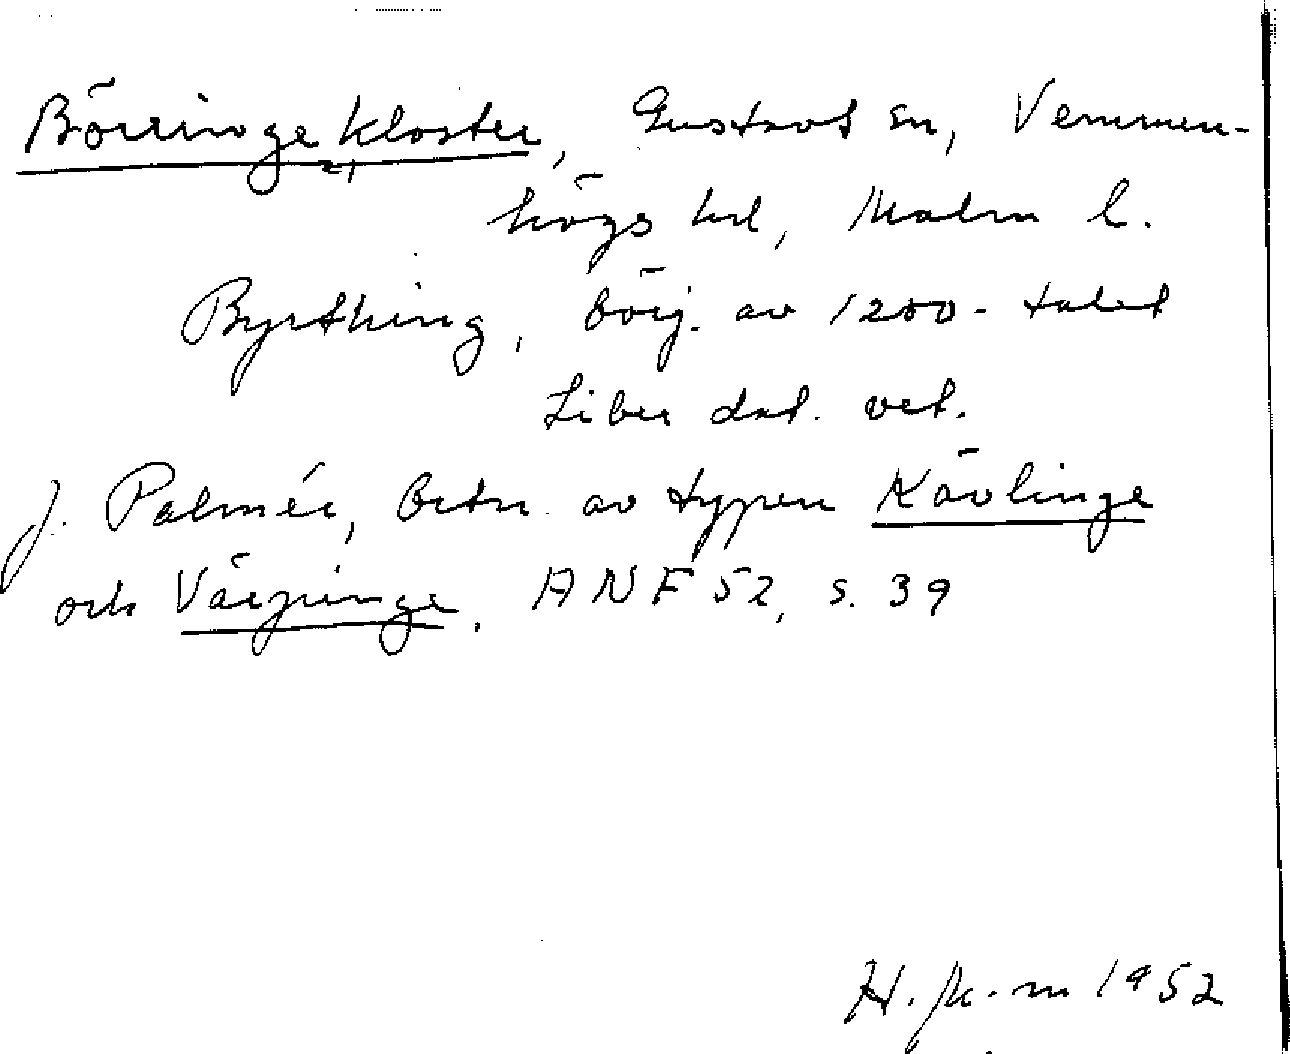 Börringekloster, Gustavs sn, Vemmen-
högs hd, Malm l.
Byrthing, börj. av 1200-talet
Liber dat. vet.
J. Palmér, Ortn. av typen Kävlinge
och Värpinge. ANF 52, s. 39
1952